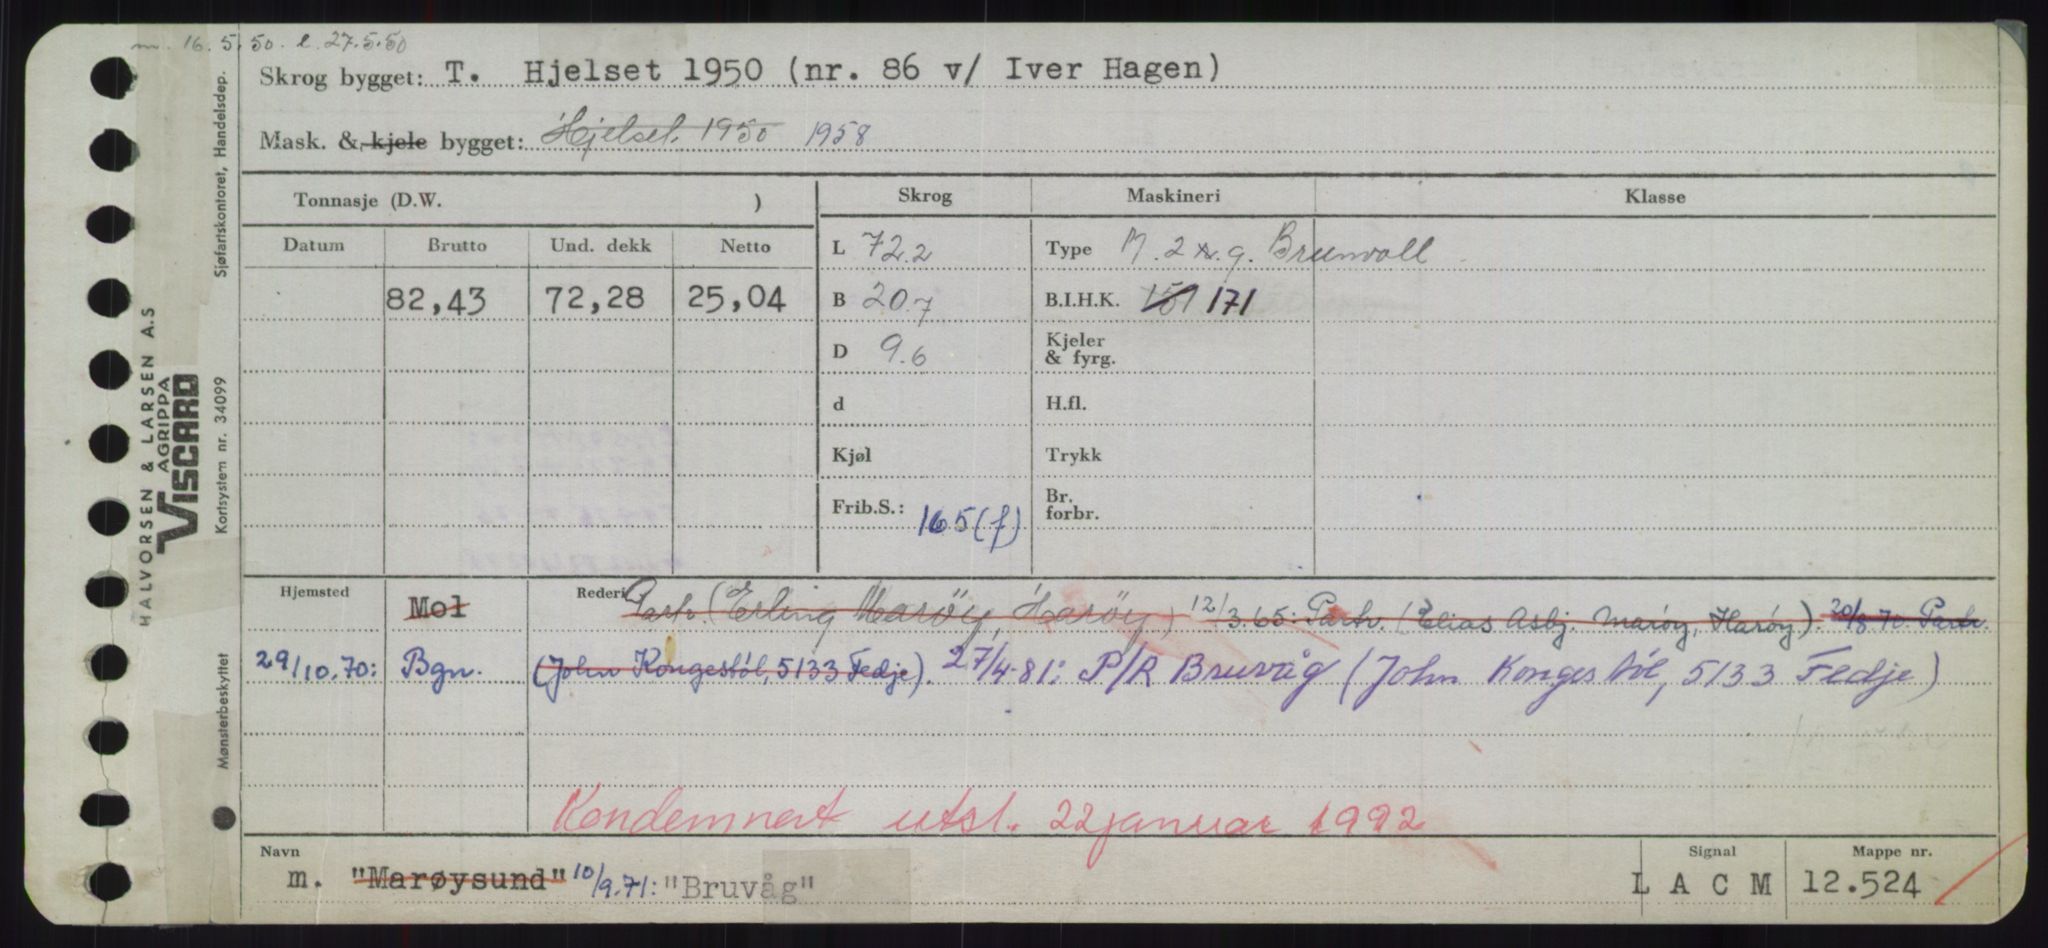 m. 16.5.50. l. 27.5.50
Skrog bygget: T. Hjelset 1950 (nr. 86 v/ Iver Hagen)
Mask. & kjele bygget: Hjelset. 1950 1958
Tonnasje (D.W. )
Skrog
Maskineri
Klasse
Datum Brutto Und. dekk Netto
82,43 72,28 25,04
L 72.2
B 20.7
D 9.6
d
Kjøl
Frib.S.: 165(f)
Type M. 2 x. g. Brunvoll
B.I.H.K. 171
Kjeler
& fyrg.
H.fl.
Trykk
Br.
forbr.
Hjemsted Mol Rederi Partr. (Erling Marøy, Harøy) 12/3.65: Partr. (Elias Asbj. Marøy, Harøy). 20/8.70 Partr.
29/10.70: Bgn. (John Kongestöl, 5133 Fedje). 27/4-81: P/R Bruvåg (John Kongestöl, 5133 Fedje)
Kondemnert utsl. 22 januar 1992
Navn
m. "Marøysund" 10/9.71: "Bruvåg"
Signal
L A C M
Mappe nr.
12.524
HALVORSEN & LARSEN A.S
AGRIPPA
VISCARD
Sjøfartskontoret, Handelsdep.
Kortsystem nr. 34099
Mønsterbeskyttet